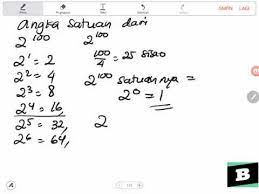 angka satuan dari
2^100 2^100
2^1 = 2
2^2 = 4
2^3 = 8
2^4 = 16,
2^5 = 32,
2^6 = 64,
100/4 = 25 sisa 0
2^100 satuannya =
2^0 = 1
2
B